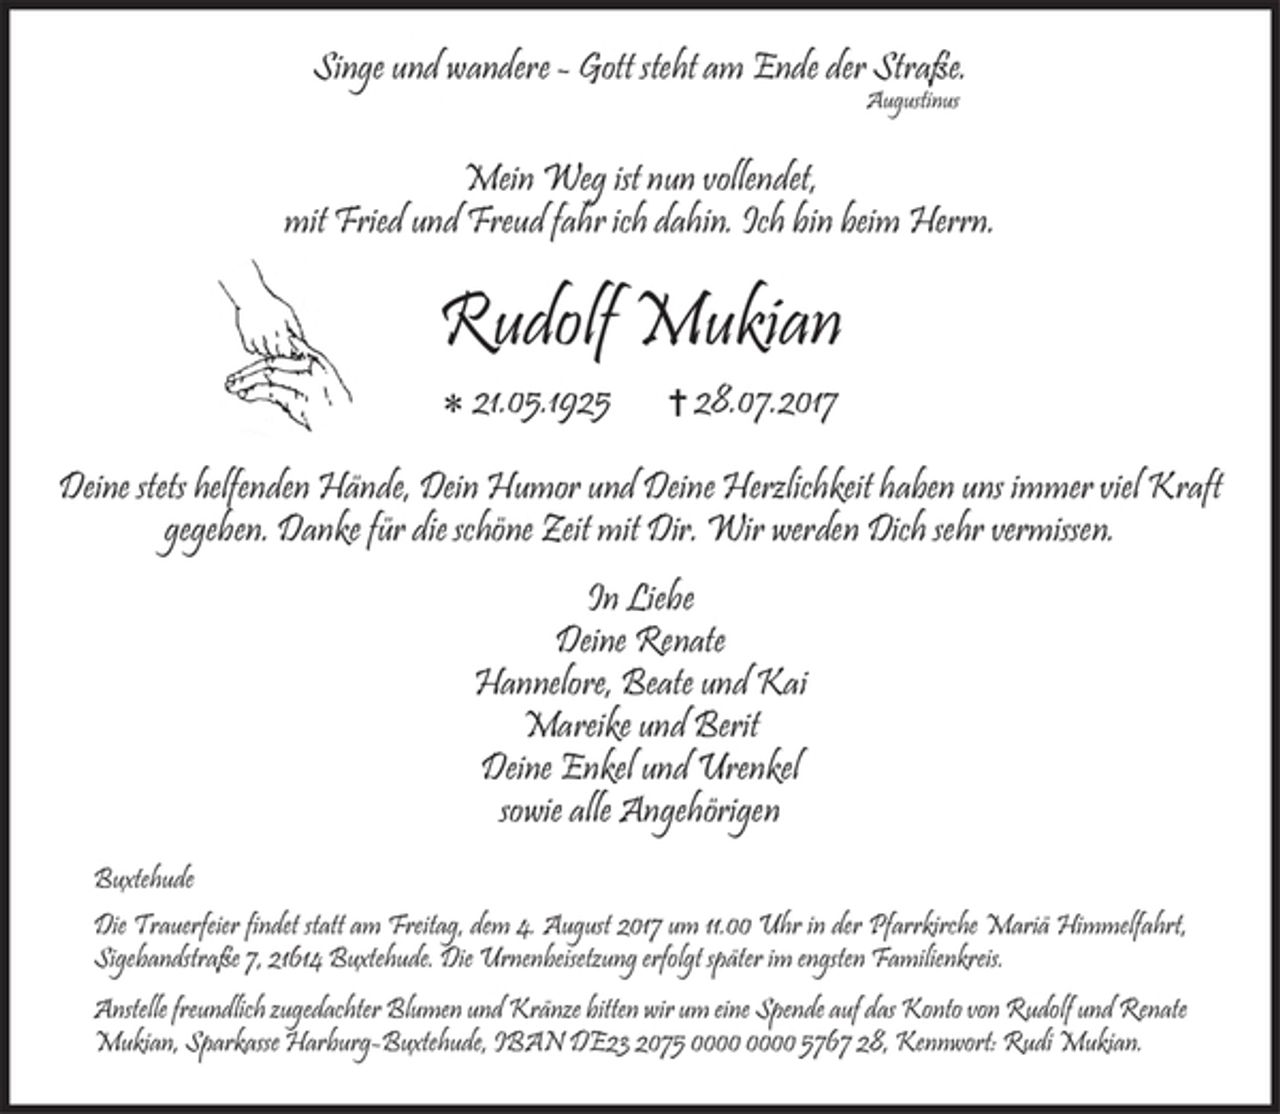 Singe und wandere - Gott steht am Ende der Straße.
Augustinus
Mein Weg ist nun vollendet,
mit Fried und Freud fahr ich dahin. Ich bin beim Herrn.
Rudolf Mukian
* 21.05.1925 † 28.07.2017
Deine stets helfenden Hände, Dein Humor und Deine Herzlichkeit haben uns immer viel Kraft
gegeben. Danke für die schöne Zeit mit Dir. Wir werden Dich sehr vermissen.
In Liebe
Deine Renate
Hannelore, Beate und Kai
Mareike und Berit
Deine Enkel und Urenkel
sowie alle Angehörigen
Buxtehude
Die Trauerfeier findet statt am Freitag, dem 4. August 2017 um 11.00 Uhr in der Pfarrkirche Mariä Himmelfahrt,
Sigebandstraße 7, 21614 Buxtehude. Die Urnenbeisetzung erfolgt später im engsten Familienkreis.
Anstelle freundlich zugedachter Blumen und Kränze bitten wir um eine Spende auf das Konto von Rudolf und Renate
Mukian, Sparkasse Harburg-Buxtehude, IBAN DE23 2075 0000 0000 5767 28, Kennwort: Rudi Mukian.